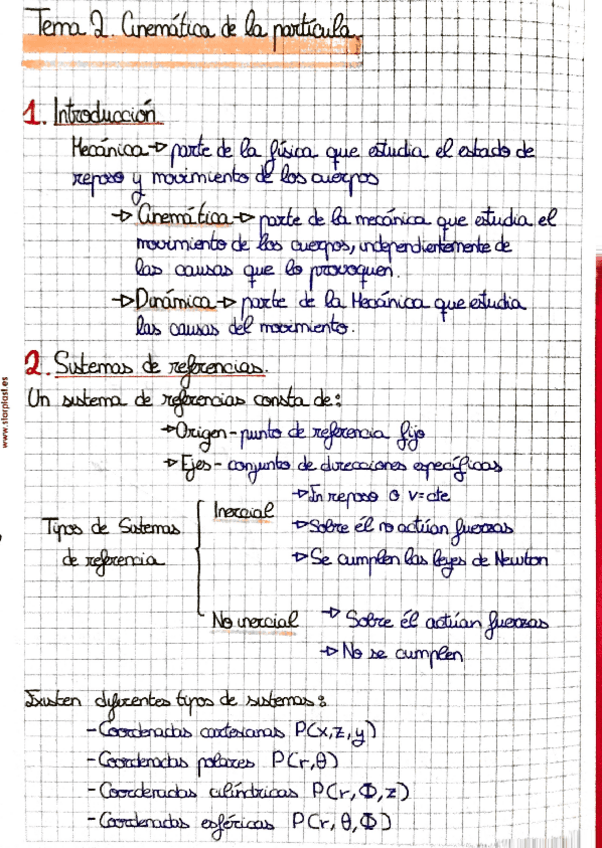 Tema 2. Cinemática de la partícula.
1. Introducción
Mecánica → parte de la física que estudia el estado de
reposo y movimiento de los cuerpos
→ Cinemática → parte de la mecánica que estudia el
movimiento de los cuerpos, independientemente de
las causas que lo provoquen.
→ Dinámica → parte de la Mecánica que estudia
las causas del movimiento.
2. Sistemas de referencias.
Un sistema de referencias consta de:
→ Origen - punto de referencia fijo
→ Ejes - conjunto de direcciones específicas
Tipos de Sistemas
de referencia
Inercial
→ In reposo o v=cte
→ Sobre él no actúan fuerzas
→ Se cumplen las leyes de Newton
No inercial
→ Sobre él actúan fuerzas
→ No se cumplen
Existen diferentes tipos de sistemas:
- Coordenadas cartesianas P(x,z,y)
- Coordenadas polares P(r,θ)
- Coordenadas cilíndricas P(r,Φ,z)
- Coordenadas esféricas P(r,θ,Φ)
www.starplast.es